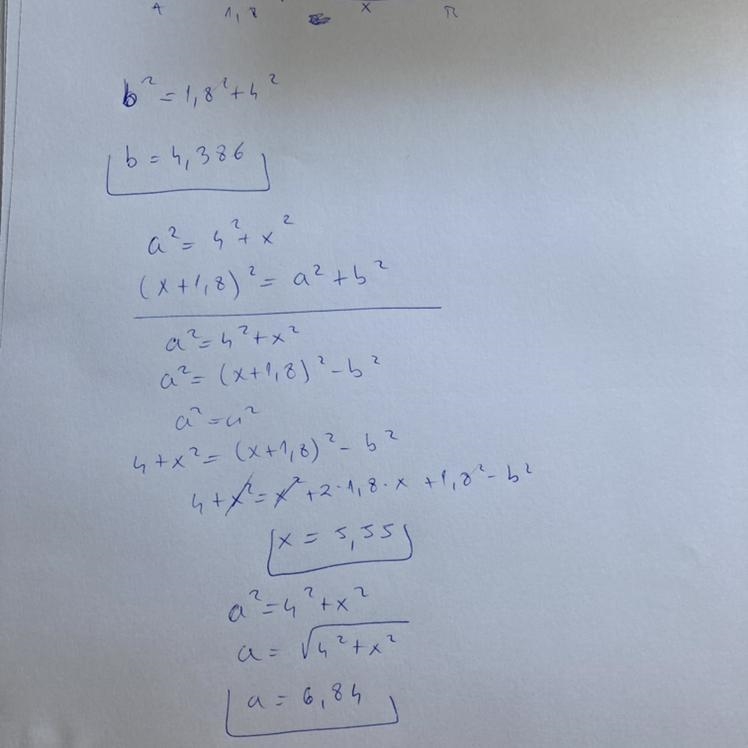 A 1,8 x B
b² = 1,8² + 4²
b = 4,386
a² = 4² + x²
(x+1,8)² = a² + b²
a² = 4² + x²
a² = (x+1,8)² - b²
a² = a²
4 + x² = (x+1,8)² - b²
4 + x² = x² + 2·1,8·x + 1,8² - b²
x = 5,55
a² = 4² + x²
a = √4² + x²
a = 6,84